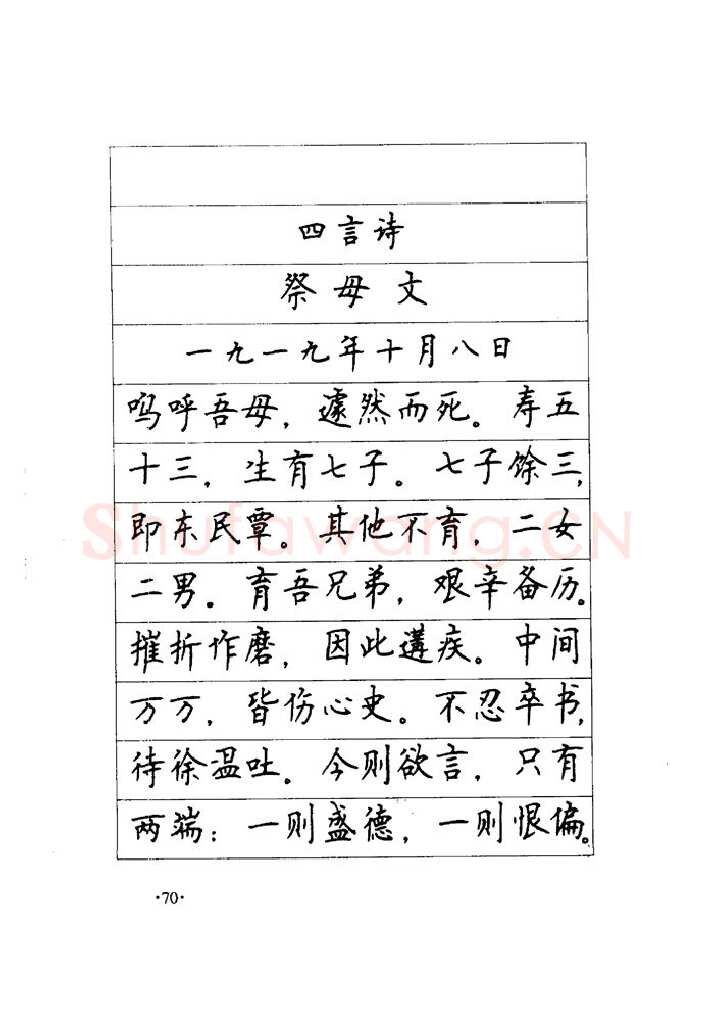 四言诗
祭母文
一九一九年十月八日
呜呼吾母，遽然而死。寿五
十三，生有七子。七子馀三，
即东民覃。其他不育，二女
二男。育吾兄弟，艰辛备历。
摧折作磨，因此遘疾。中间
万万，皆伤心史。不忍卒书，
待徐温吐。今则欲言，只有
两端：一则盛德，一则恨偏。
·70·
Shufawang.CN